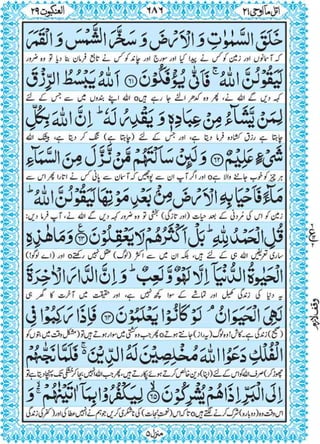 اتل مآ اوحی ۲۱ ۶۸۶ العنکبوت ۲۹
خَلَقَ السَّمٰوٰتِ وَ الْاَرْضَ وَ سَخَّرَ الشَّمْسَ وَ الْقَمَرَ
کہ آسمانوں اور زمین کو کس نے پیدا کیا اور سورج اور چاند کو کس نے تابع فرمان بنا دیا تو وہ ضرور
لَيَقُوْلُنَّ اللّٰهُ ۚ فَاَنّٰى يُؤْفَكُوْنَ ﴿۶۱﴾ اَللّٰهُ يَبْسُطُ الرِّزْقَ
کہہ دیں گے اللہ نے، پھر وہ کدھر الٹے جا رہے ہیں o اللہ اپنے بندوں میں سے جس کے لئے
لِمَنْ يَّشَآءُ مِنْ عِبَادِهٖ وَ يَقْدِرُ لَهٗ ؕ اِنَّ اللّٰهَ بِكُلِّ
چاہتا ہے رزق کشادہ فرما دیتا ہے، اور جس کے لئے (چاہتا ہے) تنگ کر دیتا ہے، بیشک اللہ
شَيْءٍ عَلِيْمٌ ﴿۶۲﴾ وَ لَئِنْ سَاَلْتَهُمْ مَّنْ نَّزَّلَ مِنَ السَّمَآءِ
ہر چیز کو خوب جاننے والا ہے o اور اگر آپ ان سے پوچھیں کہ آسمان سے پانی کس نے اتارا پھر اس سے
مَآءً فَاَحْيَا بِهِ الْاَرْضَ مِنْۢ بَعْدِ مَوْتِهَا لَيَقُوْلُنَّ اللّٰهُ ؕ
زمین کو اس کی مُردنی کے بعد حیات (اور تازگی) بخشی تو وہ ضرور کہہ دیں گے اللہ نے، آپ فرما دیں:
قُلِ الْحَمْدُ لِلّٰهِ ؕ بَلْ اَكْثَرُهُمْ لَا يَعْقِلُوْنَ ﴿۶۳﴾ وَ مَا هٰذِهِ
ساری تعریفیں اللہ ہی کے لئے ہیں، بلکہ ان میں سے اکثر (لوگ) عقل نہیں رکھتے o اور (اے لوگو!)
الْحَيٰوةُ الدُّنْيَاۤ اِلَّا لَهْوٌ وَّ لَعِبٌ ؕ وَ اِنَّ الدَّارَ الْاٰخِرَةَ
یہ دنیا کی زندگی کھیل اور تماشے کے سوا کچھ نہیں ہے، اور حقیقت میں آخرت کا گھر ہی
لَهِيَ الْحَيَوَانُ ۘ لَوْ كَانُوْا يَعْلَمُوْنَ ﴿۶۴﴾ فَاِذَا رَكِبُوْا فِي
(صحیح) زندگی ہے۔ کاش! وہ لوگ (یہ راز) جانتے ہوتے o پھر جب وہ کشتی میں سوار ہوتے ہیں تو (مشکل وقت میں بتوں کو
الْفُلْكِ دَعَوُا اللّٰهَ مُخْلِصِيْنَ لَهُ الدِّيْنَ ۚ فَلَمَّا نَجّٰىهُمْ
چھوڑ کر) صرف اللہ کو اس کے لئے (اپنا) دین خالص کرتے ہوئے پکارتے ہیں، پھر جب اللہ انہیں بچا کر خشکی تک پہنچا دیتا ہے تو
اِلَى الْبَرِّ اِذَا هُمْ يُشْرِكُوْنَ ﴿۶۵﴾ لِيَكْفُرُوْا بِمَاۤ اٰتَيْنٰهُمْ ۙ وَ
اس وقت وہ (دوبارہ) شرک کرنے لگتے ہیں o تاکہ اس (نعمتِ نجات) کی ناشکری کریں جو ہم نے انہیں عطا کی اور (کفر کی زندگی
وقف لازم
منزل ۵